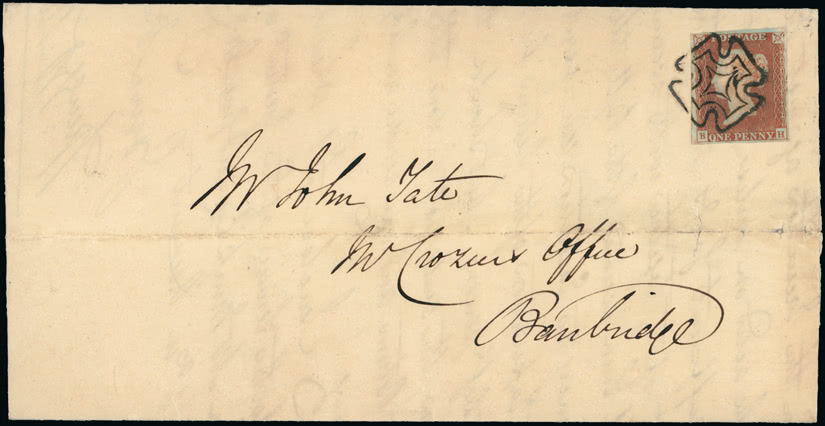 POSTAGE
B ONE PENNY H
Mr John Tate
Mr Croziers Office
Banbridge